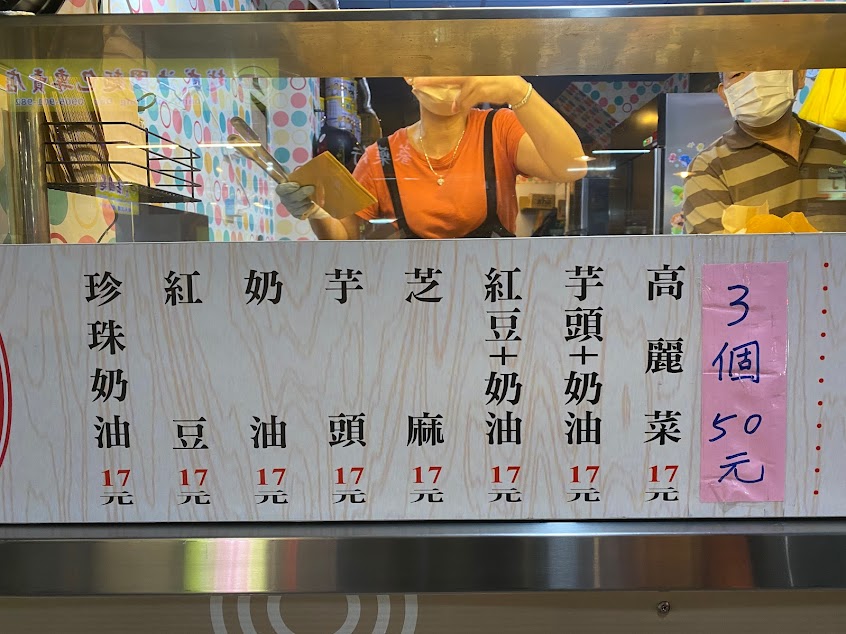 珍珠奶油 17元
紅豆 17元
奶油 17元
芋頭 17元
芝麻 17元
紅豆+奶油 17元
芋頭+奶油 17元
高麗菜 17元
3個50元